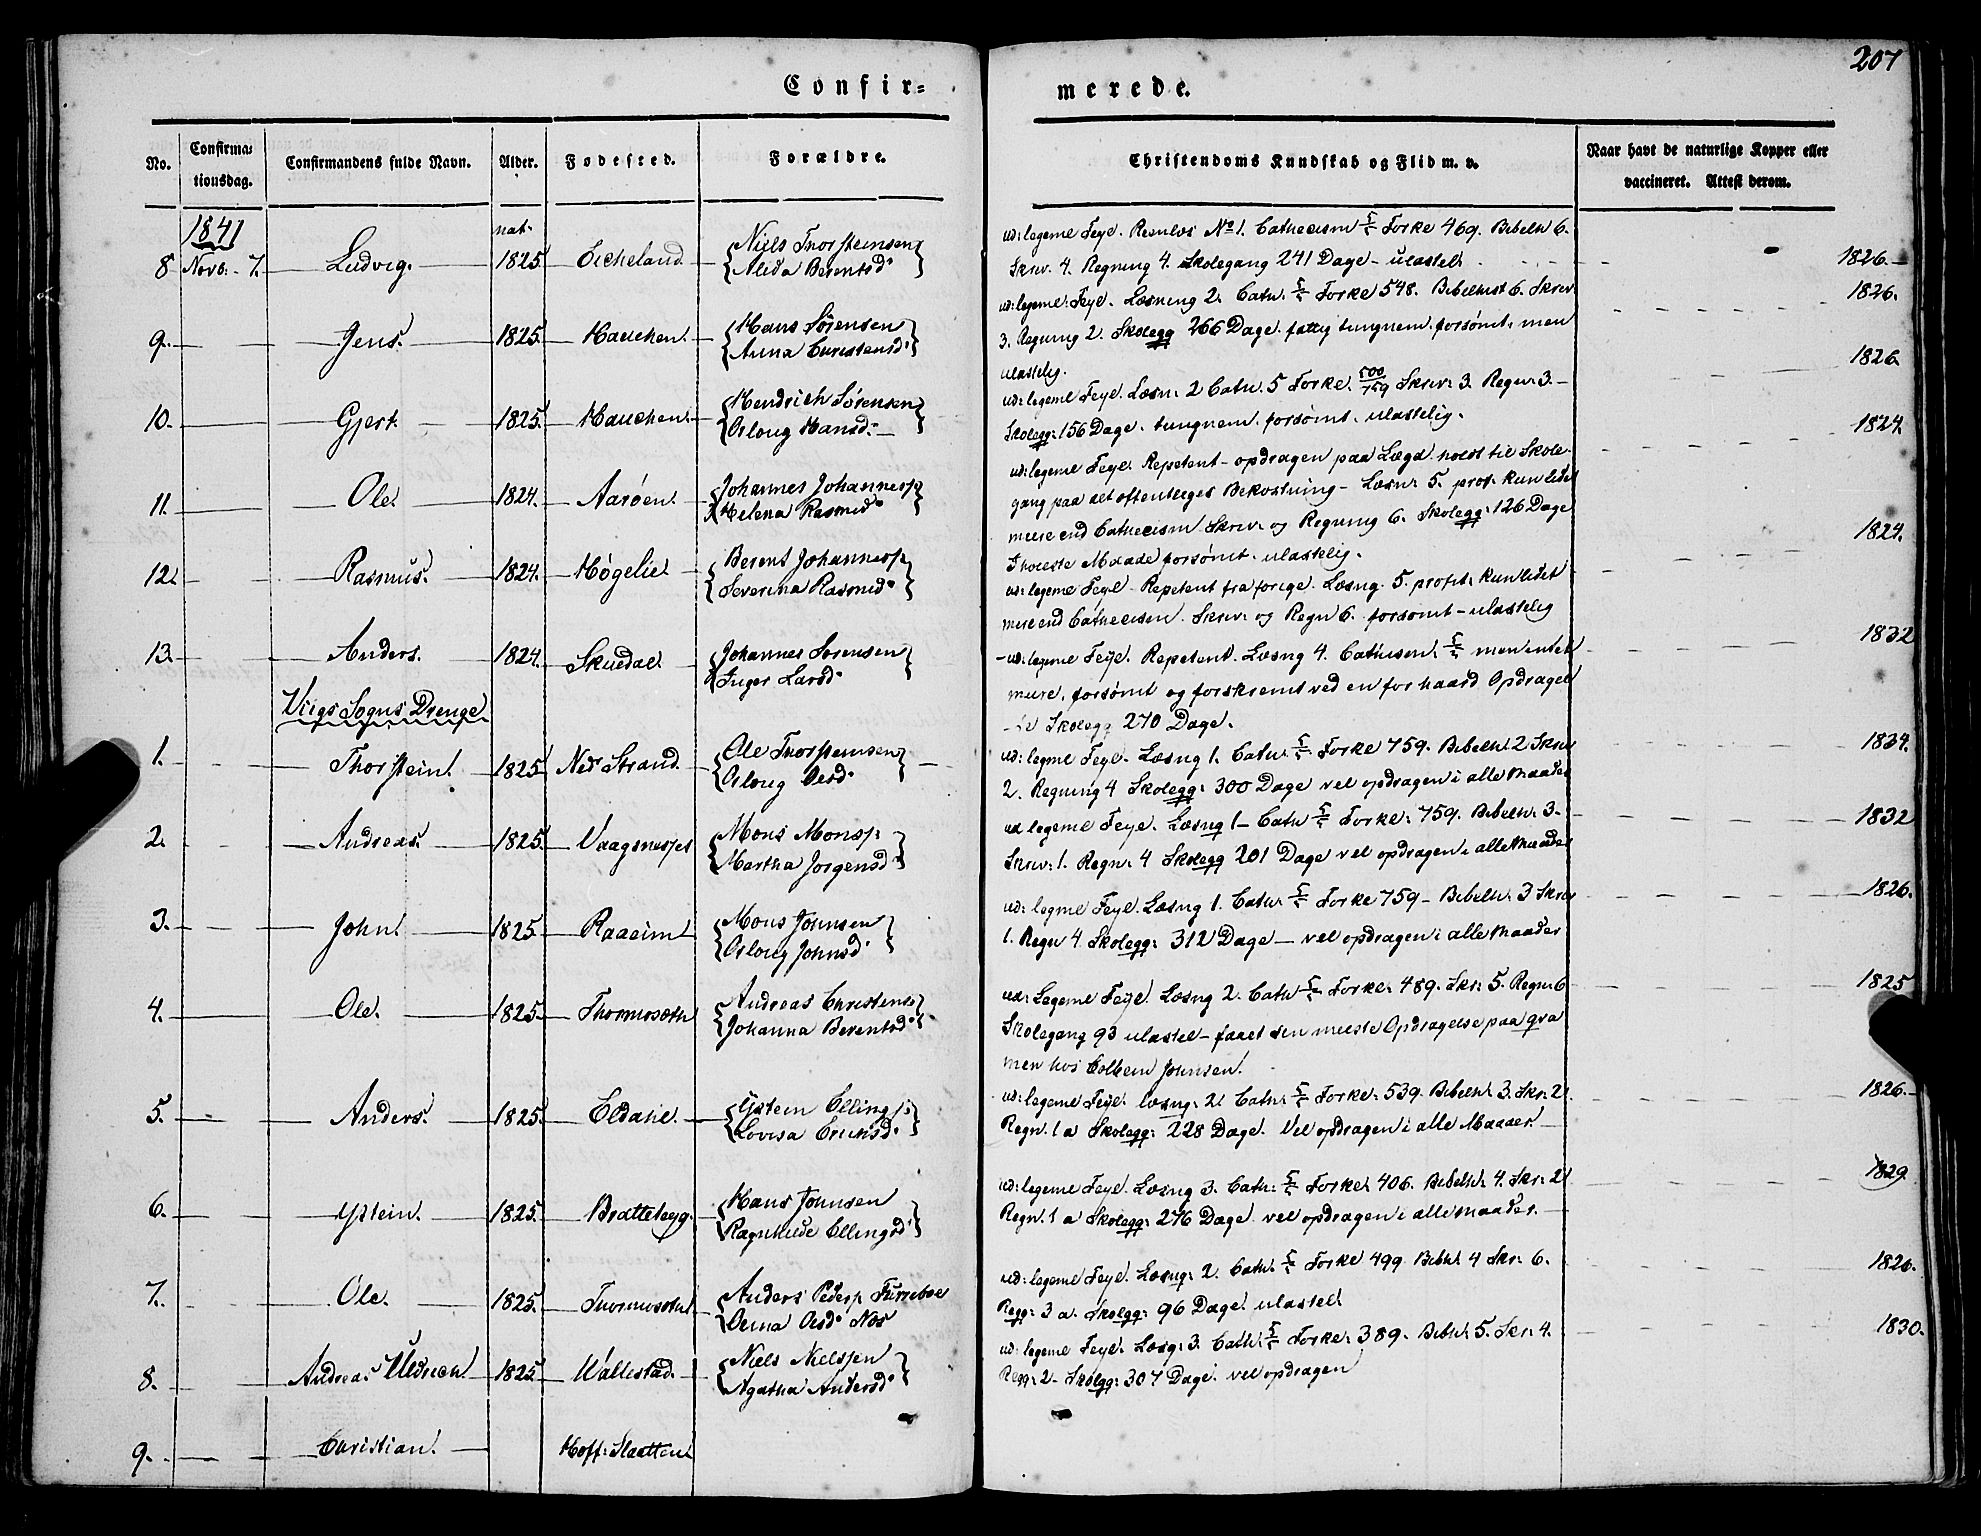 207
Confir=
merede.
No. Confirma=tionsdag. Confirmandens fulde Navn. Alder. Fødested. Forældre. Christendoms Kundskab og Flid m. v. Naar havt de naturlige Kopper eller vaccineret. Attest derom.
1841 nat.
8 Novb. 7. Ludvig. 1825 Eicheland Niels Thorsteinsen
Alida Berentsd.
ud: legeme Feyl. No 1. Cathecism 5/5 Forke 469. Bibelh 6.
Skriv. 4. Regning 4. Skolegang 241 Dage - ulastel. 1826.
9. Jens. 1825. Hauchen. Hans Sörensen
Anna Christensd.
ud: legeme: Feyl. Læsning 2. Cath. 5/5 Forke 548. Bibelhist 6. Skriv. 1826.
3. Regning 2. Skolegg 266 Dage. fattig tungnem. forsømt, men
ulastelig.
10. Gjert. 1825. Hauchen. Hendrich Sørensen
Oloug Hansd.
ud: legeme Feyl. Læsn: 2 Cath. 5 Forke. 500/759 Skriv: 3. Regn: 3. 1826
Skolegg: 156 Dage. tungnem. forsømt. ulastelig.
11. Ole. 1824. Aarøen. Johannes Johannesp
Helena Rasmusd.
ud: legeme Feyl. Repetent - opdragen paa Lægd. holdt til Skole 1824.
gang paa det offentliges Bekostning - Læsn: 5. prof. kun lidet
meere end Cathecism Skriv. og Regning 6. Skolegg: 126 Dage
I höieste Maade forsømt. ulastelig.
12. Rasmus. 1824. Høgelie Berent Johannesp
Severina Rasmusd.
ud: legeme Feyl - Repetent fra forige. Læsng. 5. profit. kun lidet 1824.
mere end Cathecism. Skriv. og Regn 6. forsømt - ulastelig
13. Anders. 1824. Skuedal Johannes Sørensen
Inger Larsd.
ud: legeme Feyl. Repetent. Læsng 4. Cathism. 5/5 men intet 1832
mere. forsømt og forskremt ved en for haard Opdragel
Skolegg 270 Dage.
Viigs Sogns Drenge.
1. Thorstein. 1825 Ned Strand. Ole Thorsteinsen
Oloug Olsd.
ud: legme Feyl. Læsng 1. Cath: 5/5 Forke 759. Bibelh. 2 Skriv 1834.
2. Regning 4 Skolegg: 300 Dage vel opdragen i alle Maader
2. Andreas. 1825. Vaagsnesset Mons Monsp
Martha Jørgensd.
ud legeme Feyl. Læsng 1 - Cath 5/5 Forke: 759. Bibelh: 3. 1832
Skriv: 1. Regn: 4 Skolegg 201 Dage vel opdragen i alle Maader
3. John. 1825. Raaeim Mons Johnsen
Oloug Johnsd
ud: legme Feyl. Læsng 1. Cath. 5/5 Forke 759 - Bibelh. 3 Skriv 1826.
1. Regn 4. Skolegg: 312 Dage - vel opdragen i alle Maader
4. Ole. 1825. Thormosæth Andreas Christens
Johanna Berentsd.
ud: Legeme Feyl. Læsng 2. Cath 5/5 Forke: 489. Skr: 5. Regn: 6 1825
Skolegang 93 ulastel - faaet den meeste Opdragelse paa gra
men hos Colbein Johnsen.
5. Anders. 1825. Eldalie. Ystein Ellings
Lovisa Ericksd.
ud: legeme Feyl. Læsng: 2. Cath. 5/5 Forke: 539. Bibelh. 3. Skr: 2. 1826.
Regn. 1 a Skolegg: 228 Dage. Vel opdragen i alle Maader.
6. Ystein. 1825. Bratteteyg. Hans Johnsen
Ragnhilde Ellingsd
ud: legeme Feyl. Læsng 3. Cath: 5/5 Forke. 406. Bibelh. 4. Skr: 2. 1829.
Regn. 1 a Skolegg: 276 Dage. vel opdragen i alle Maader.
7. Ole. 1825. Thormosæth Anders Pedersp Furreboe
Olina Olsd. Nos
ud: legeme Feyl. Læsng: 2. Cath. 5/5 Forke 499. Bibelh. 4 Skr: 6. 1826.
Regg: 3 a. Skolegg: 96 Dage. ulastel.
8. Andreas Uldrich 1825. Vallestad. Niels Nielssen
Agatha Andersd.
ud: legeme Feyl. Læsg: 3. Cath. 5/5 Forke: 389. Bibelh. 5. Skr: 4. 1830.
Regg: 2 - Skolegg: 307 Dage. vel opdragen
9. Christian. Hoff: Slaatten